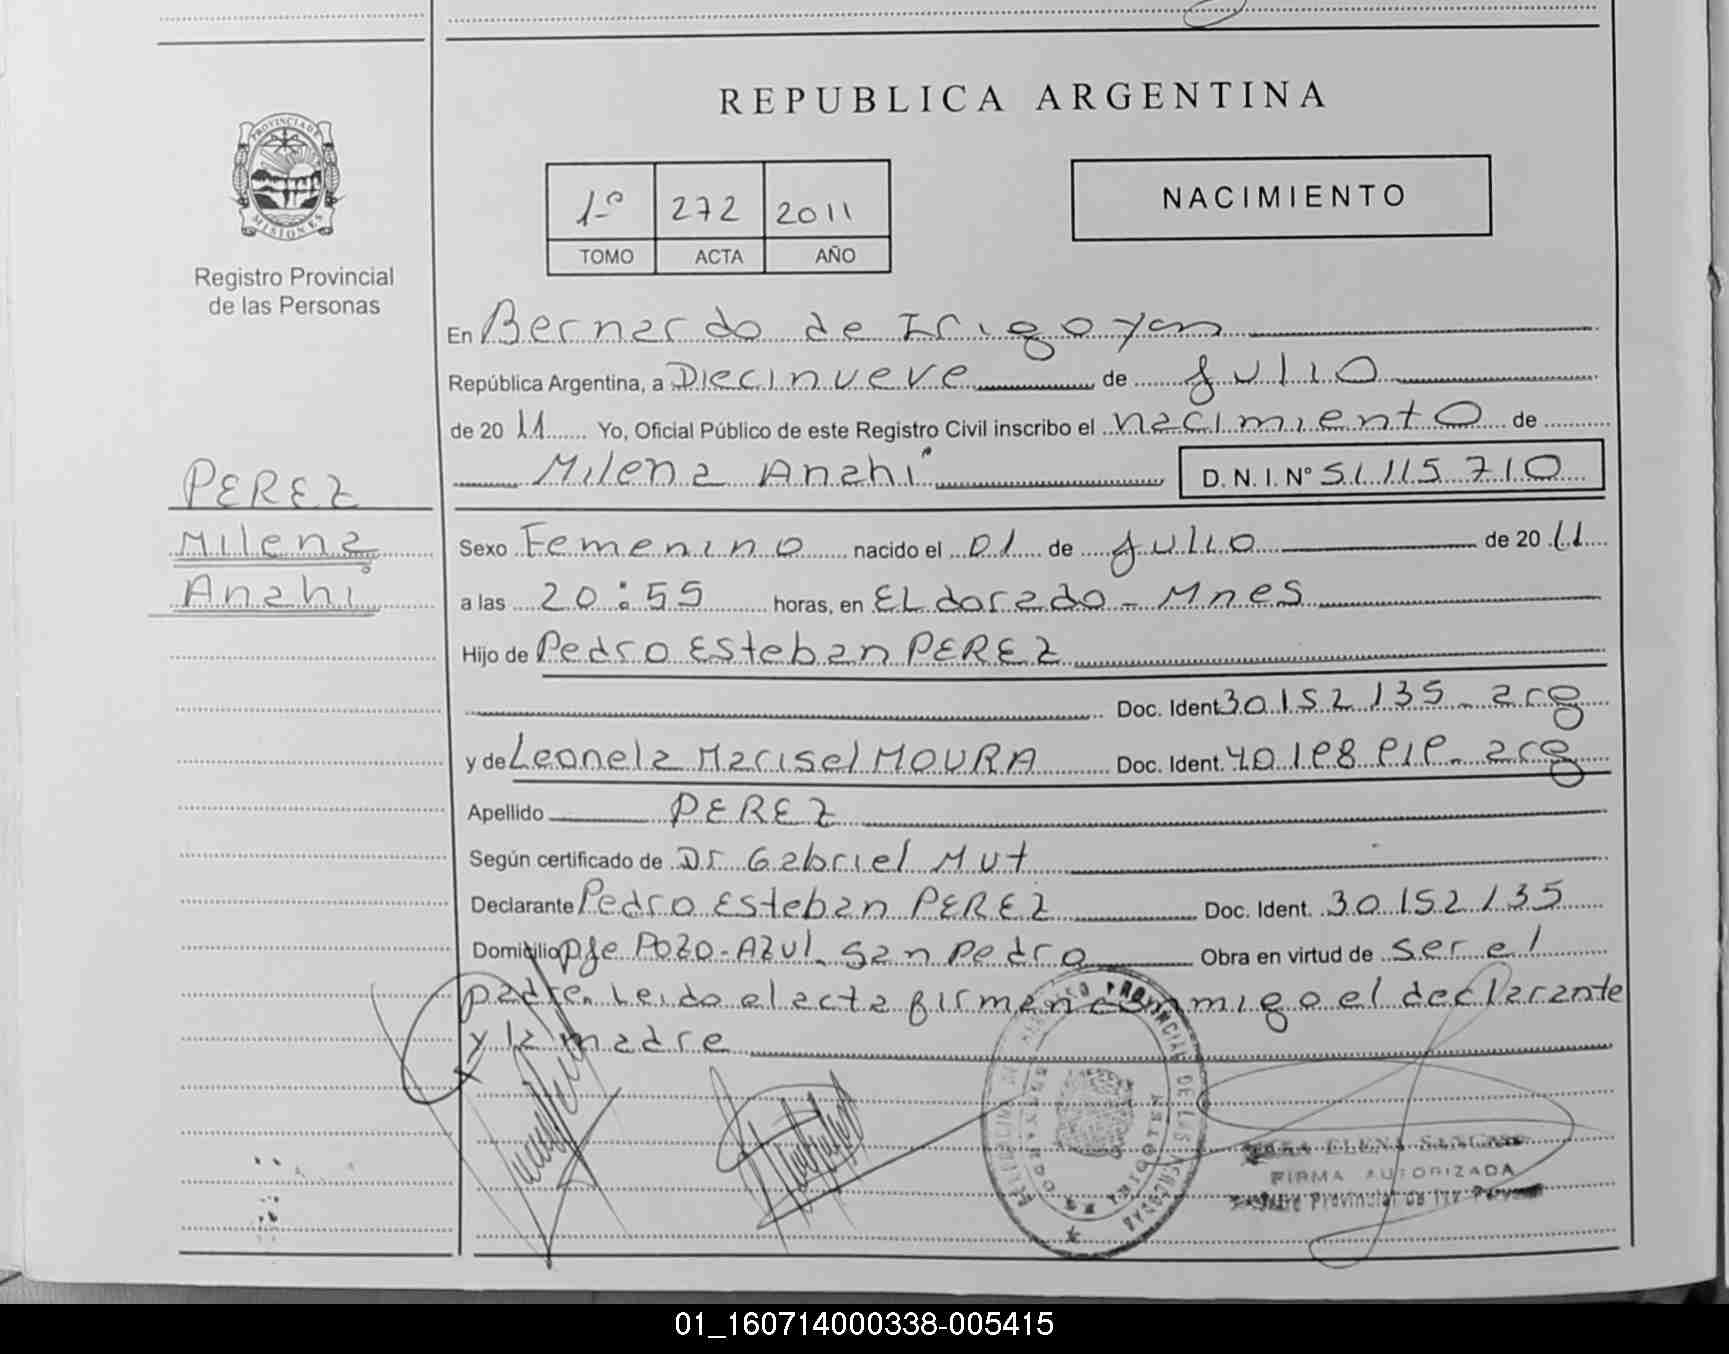 REPUBLICA ARGENTINA
PROVINCIA DE MISIONES
Registro Provincial
de las Personas
1º 272 2011
TOMO ACTA AÑO
NACIMIENTO
En Bernardo de Irigoyen
República Argentina, a Diecinueve de Julio
de 20 11 Yo, Oficial Público de este Registro Civil inscribo el nacimiento de
Milena Anahí D. N. I. Nº 51.115.710
PEREZ
Milena
Anahi
Sexo Femenino nacido el 01 de Julio de 20 11
a las 20:55 horas, en ELdorado - Mnes
Hijo de Pedro Esteban PEREZ
Doc. Ident. 30.152.135 - arg
y de Leonela Marisel MOURA Doc. Ident. arg
Apellido PEREZ
Según certificado de Dr Gabriel Mut
Declarante Pedro Esteban PEREZ Doc. Ident. 30.152.135
Domicilio pje Pozo-Azul San Pedro Obra en virtud de ser el
padre. Leido el acta firman conmigo el declarante
y la madre
ELENA
FIRMA AUTORIZADA
Provincial de las
01_160714000338-005415